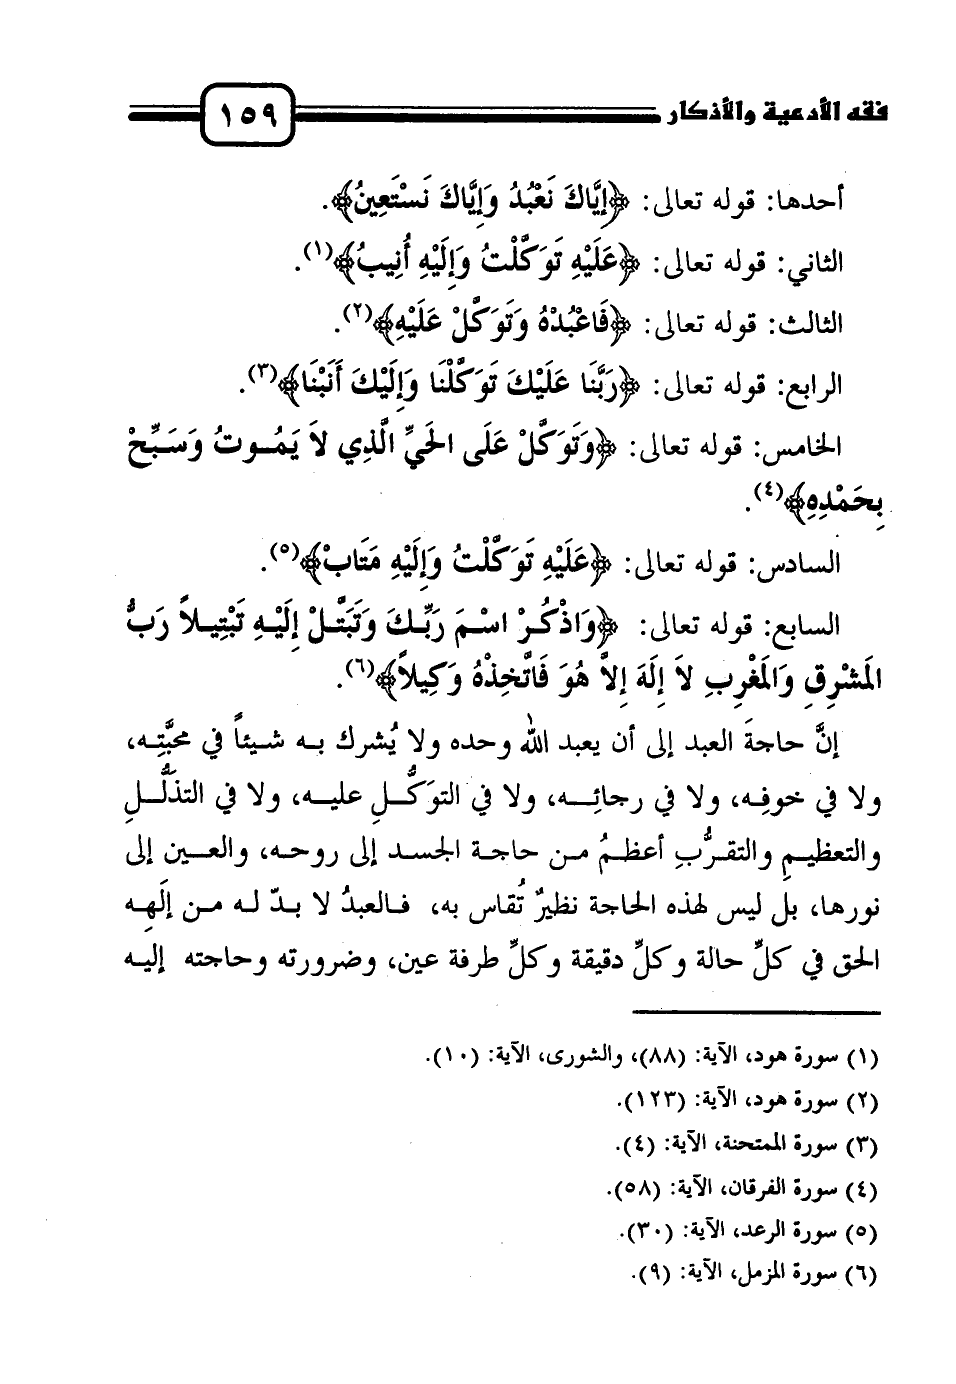 فقه الأدعية والأذكار ١٥٩
أحدها: قوله تعالى: ﴿إِيَّاكَ نَعْبُدُ وَإِيَّاكَ نَسْتَعِينُ﴾.
الثاني: قوله تعالى: ﴿عَلَيْهِ تَوَكَّلْتُ وَإِلَيْهِ أُنِيبُ﴾(١).
الثالث: قوله تعالى: ﴿فَاعْبُدْهُ وَتَوَكَّلْ عَلَيْهِ﴾(٢).
الرابع: قوله تعالى: ﴿رَبَّنَا عَلَيْكَ تَوَكَّلْنَا وَإِلَيْكَ أَنَبْنَا﴾(٣).
الخامس: قوله تعالى: ﴿وَتَوَكَّلْ عَلَى الحَيِّ الَّذِي لاَ يَمُوتُ وَسَبِّحْ
بِحَمْدِهِ﴾(٤).
السادس: قوله تعالى: ﴿عَلَيْهِ تَوَكَّلْتُ وَإِلَيْهِ مَتَابْ﴾(٥).
السابع: قوله تعالى: ﴿وَاذْكُرْ اسْمَ رَبِّكَ وَتَبَتَّلْ إِلَيْهِ تَبْتِيلاً رَبُّ
المَشْرِقِ وَالمَغْرِبِ لاَ إِلَهَ إِلاَّ هُوَ فَاتَّخِذْهُ وَكِيلاً﴾(٦).
إنَّ حاجةَ العبد إلى أن يعبد الله وحده ولا يُشرك به شيئاً في محبَّتِه،
ولا في خوفِه، ولا في رجائِه، ولا في التوَكُّلِ عليه، ولا في التذَلُّلِ
والتعظيمِ والتقرُّبِ أعظمُ من حاجة الجسد إلى روحه، والعين إلى
نورها، بل ليس لهذه الحاجة نظيرٌ تُقاس به، فالعبدُ لا بدّ له من إلَهِه
الحق في كلِّ حالة وكلِّ دقيقة وكلِّ طرفة عين، وضرورته وحاجته إليه
(١) سورة هود، الآية: (٨٨)، والشورى، الآية: (١٠).
(٢) سورة هود، الآية: (١٢٣).
(٣) سورة الممتحنة، الآية: (٤).
(٤) سورة الفرقان، الآية: (٥٨).
(٥) سورة الرعد، الآية: (٣٠).
(٦) سورة المزمل، الآية: (٩).